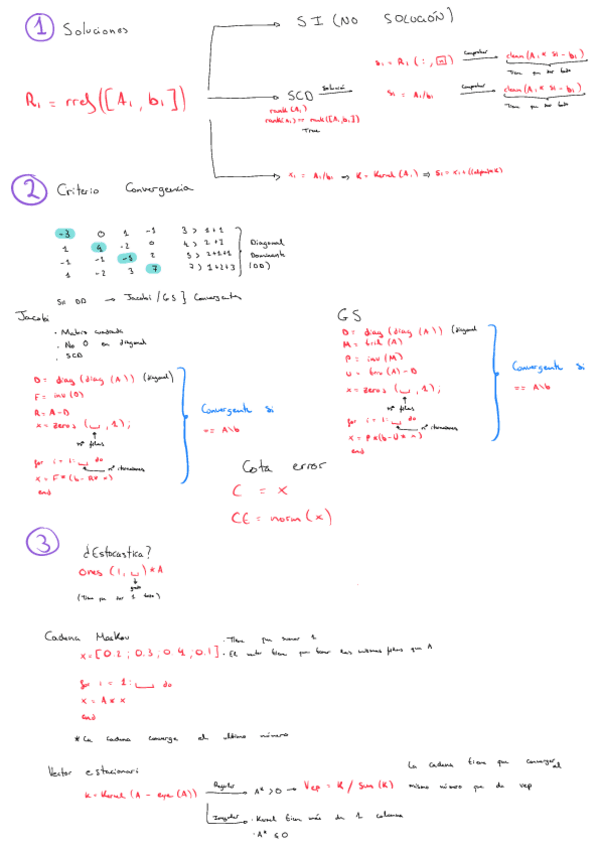 1 Soluciones
SI (NO SOLUCIÓN)
R₁ = rref([A₁, b₁])
SCD
rank(A₁)
rank(A₁) == rank([A₁, b₁])
True
Solución
s₁ = R₁(:, n)
Comprobar
clean(A₁ * s₁ - b₁)
Tiene que ser todo
s₁ = A₁/b₁
Comprobar
clean(A₁ * s₁ - b₁)
Tiene que ser todo
x₁ = A₁/b₁ ⇒ K = Kernel(A₁) ⇒ S₁ = x₁+((alpha)*K)
2 Criterio Convergencia
-3 0 1 -1 3 > 1+1
1 4 -2 0 4 > 2+1
-1 -1 -5 2 5 > 2+1+1
1 -2 3 7 7 > 1+2+3
Diagonal
Dominante
(DD)
Si DD → Jacobi / GS ] Convergente
Jacobi
· Matriz cuadrada
· No 0 en diagonal
· SCD
D = diag(diag(A)) (diagonal)
F = inv(D)
R = A-D
x = zeros(␣, 1);
nº filas
for i = 1:␣ do
nº iteraciones
x = F*(b-R*x)
end
Convergente si
== A\b
GS
D = diag(diag(A)) (diagonal)
M = tril(A)
P = inv(M)
U = triu(A)-D
x = zeros(␣, 1);
nº filas
for i = 1:␣ do
nº iteraciones
x = P*(b-U*x)
end
Convergente si
== A\b
Cota error
C = x
CE = norm(x)
3
¿Estocastica?
Ones(1, ␣)*A
(Tiene que ser 1 todo)
Cadena Markov
x = [0.2; 0.3; 0.4; 0.1]
· Tiene que sumar 1
· El vector tiene que tener las mismas filas que A
for i = 1:␣ do
x = A*x
end
* La cadena converge al último número
Vector estacionari
K = Kernel(A - eye(A))
Regular
Aᴷ > 0 → Vep = K / Sum(K)
La cadena tiene que converger al
mismo número que da vep
Irregular
· Kernel tiene más de 1 columna
· Aᴷ ≤ 0